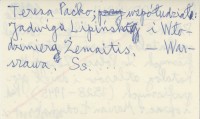 Teresa Pacho; współudział:
Jadwiga Lipińska i Wło-
dzimierz Żemaitis. — War-
szawa. Ss.